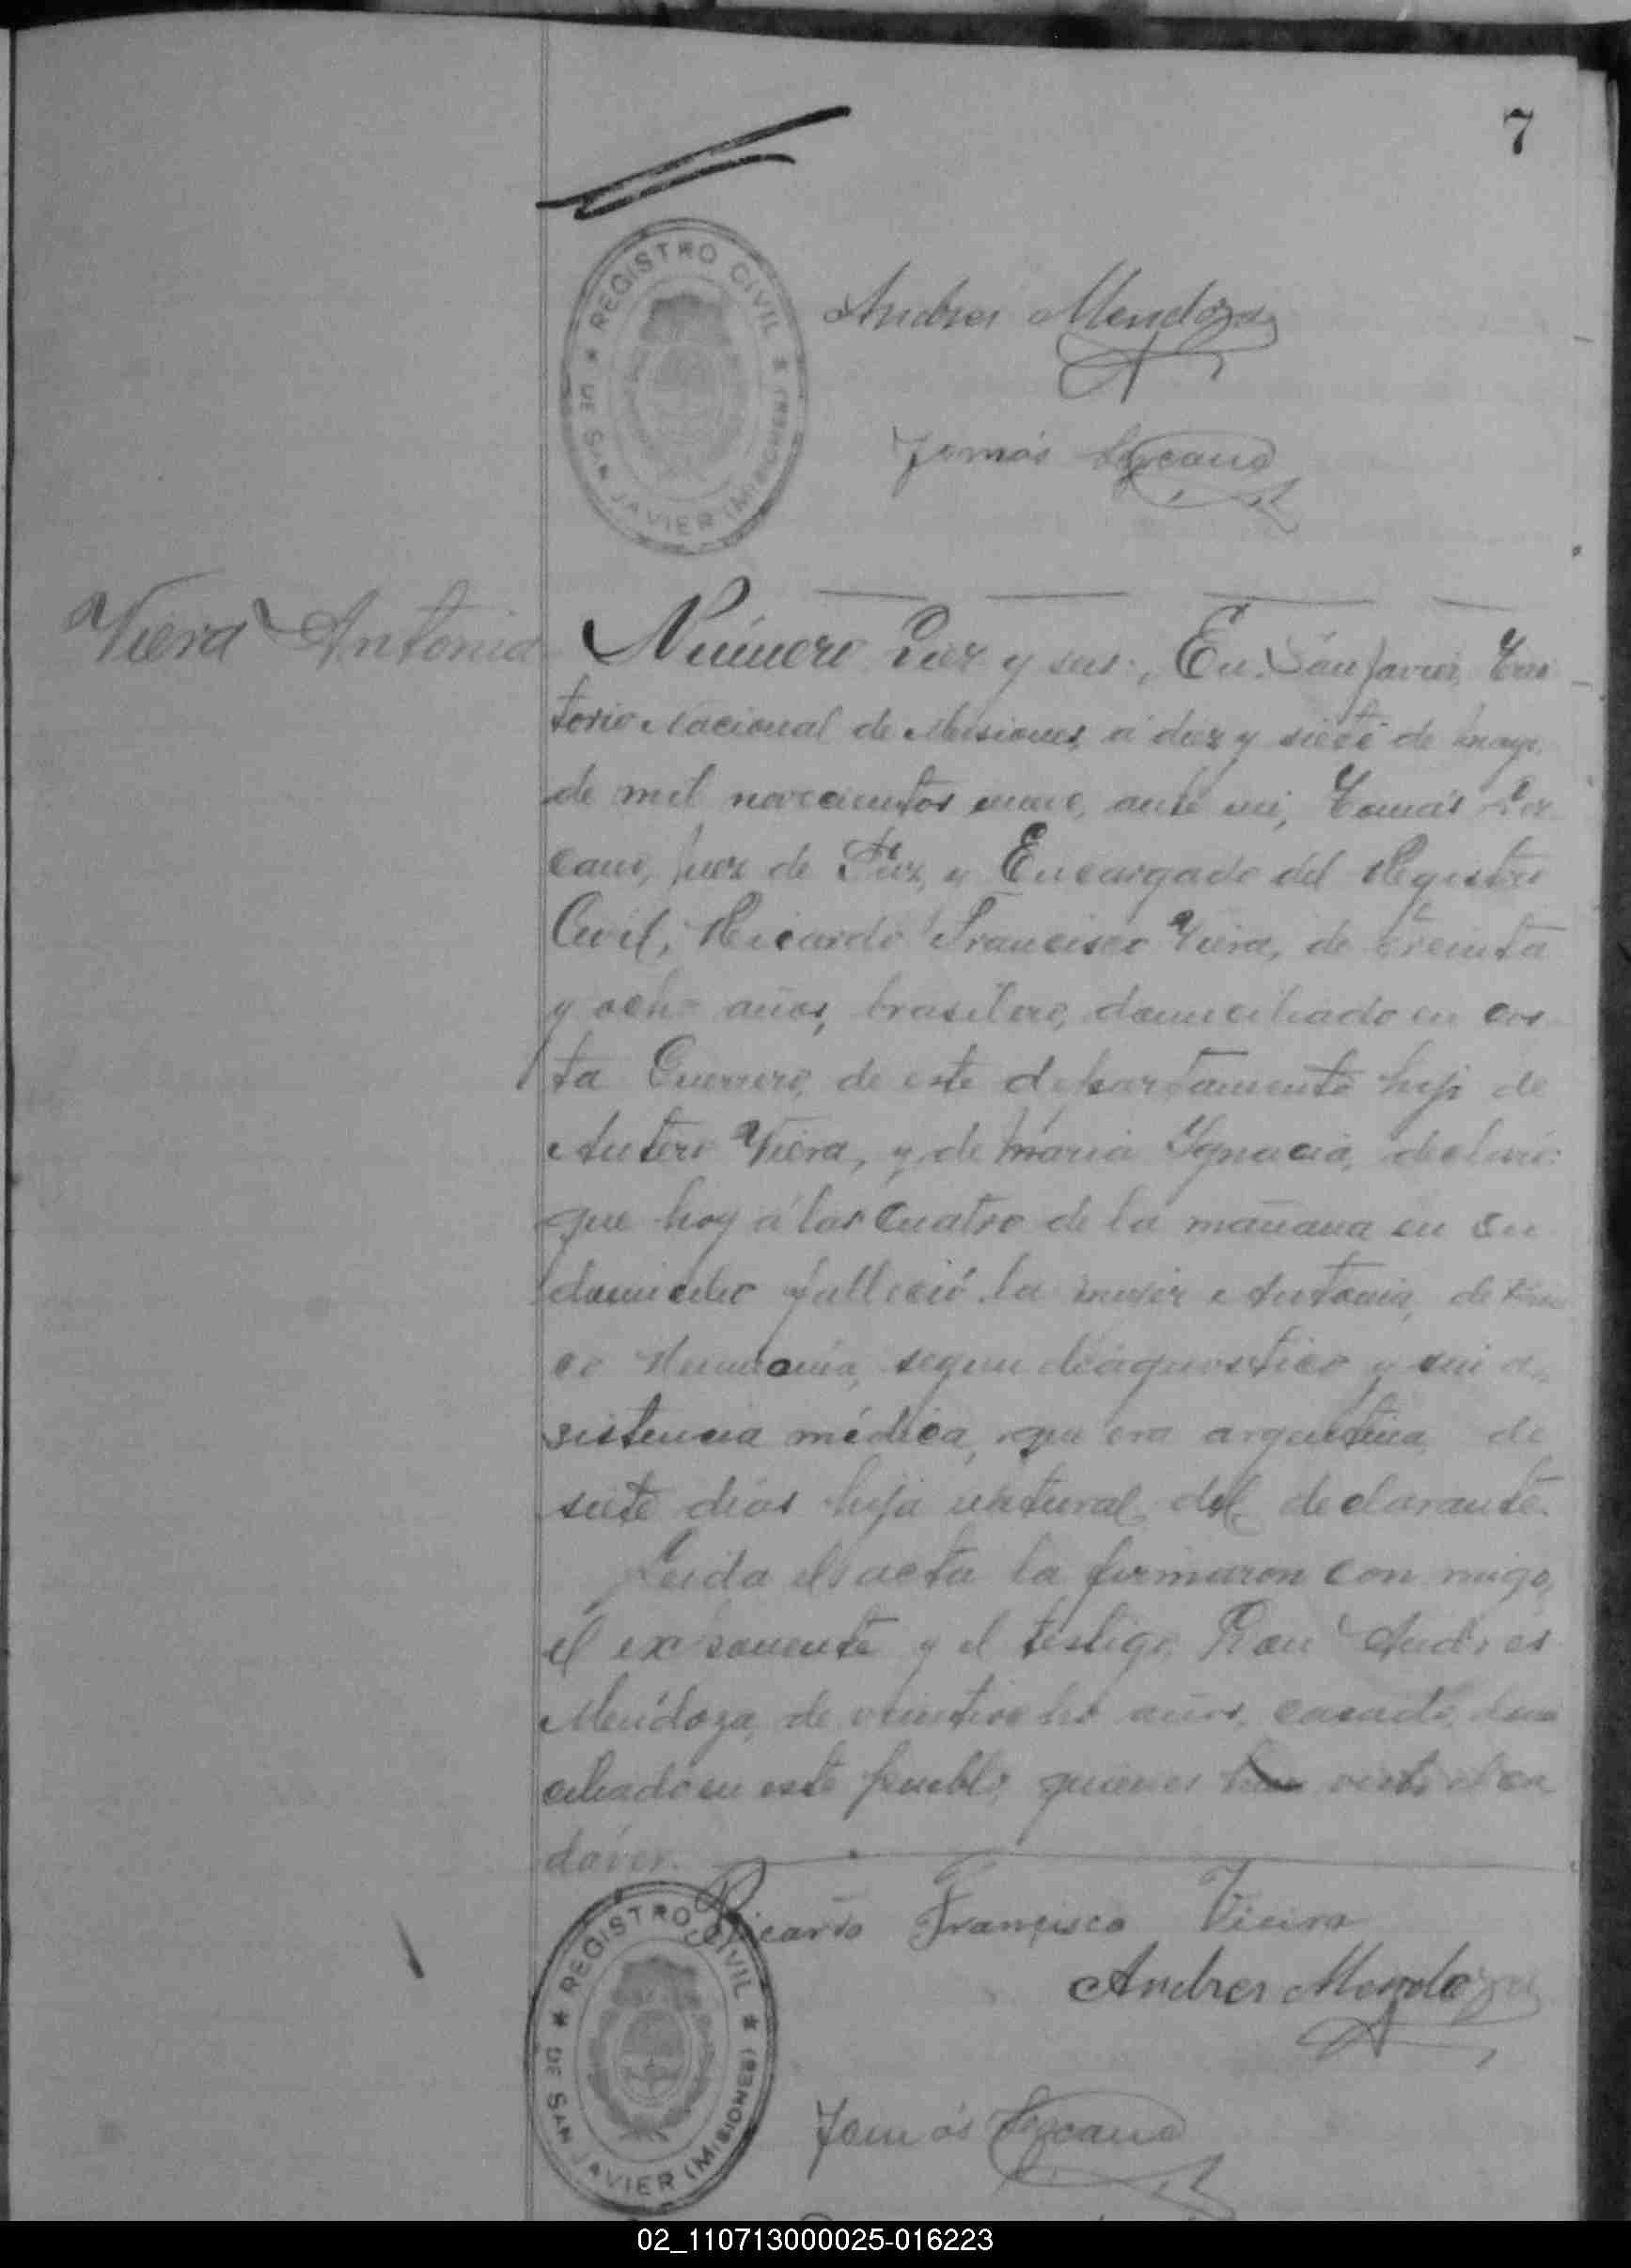 7
REGISTRO CIVIL
DE SAN JAVIER (MISIONES)
Andres Mendoza
Tomás Lezcano
Viera Antonia
Número Diez y seis: En San Javier, Terri
torio Nacional de Misiones, á diez y siete de mayo
de mil novecientos nueve, ante mi, Tomás Lez
cano, Juez de Paz, y Encargado del Registro
Civil, Ricardo Francisco Viera, de treinta
y ocho años, brasilero, domiciliado en cos
ta Guerrero, de este departamento hijo de
Antero Viera, y de Maria Ygnacia, declaró:
que hoy á las cuatro de la mañana en su
domicilio falleció la mujer Antonia, de
segun diagnostico y sin a
sistencia médica, que era argentina, de
siete dias hija natural del declarante.
Leida el acta la firmaron con migo,
el exponente y el testigo Don Andres
Mendoza, de veintiocho años, casado, domi
ciliado en este pueblo, quienes han visto el ca
dáver.
Ricardo Francisco Vieira
Andres Mendoza
REGISTRO CIVIL
DE SAN JAVIER (MISIONES)
Tomás Lezcano
02_110713000025-016223